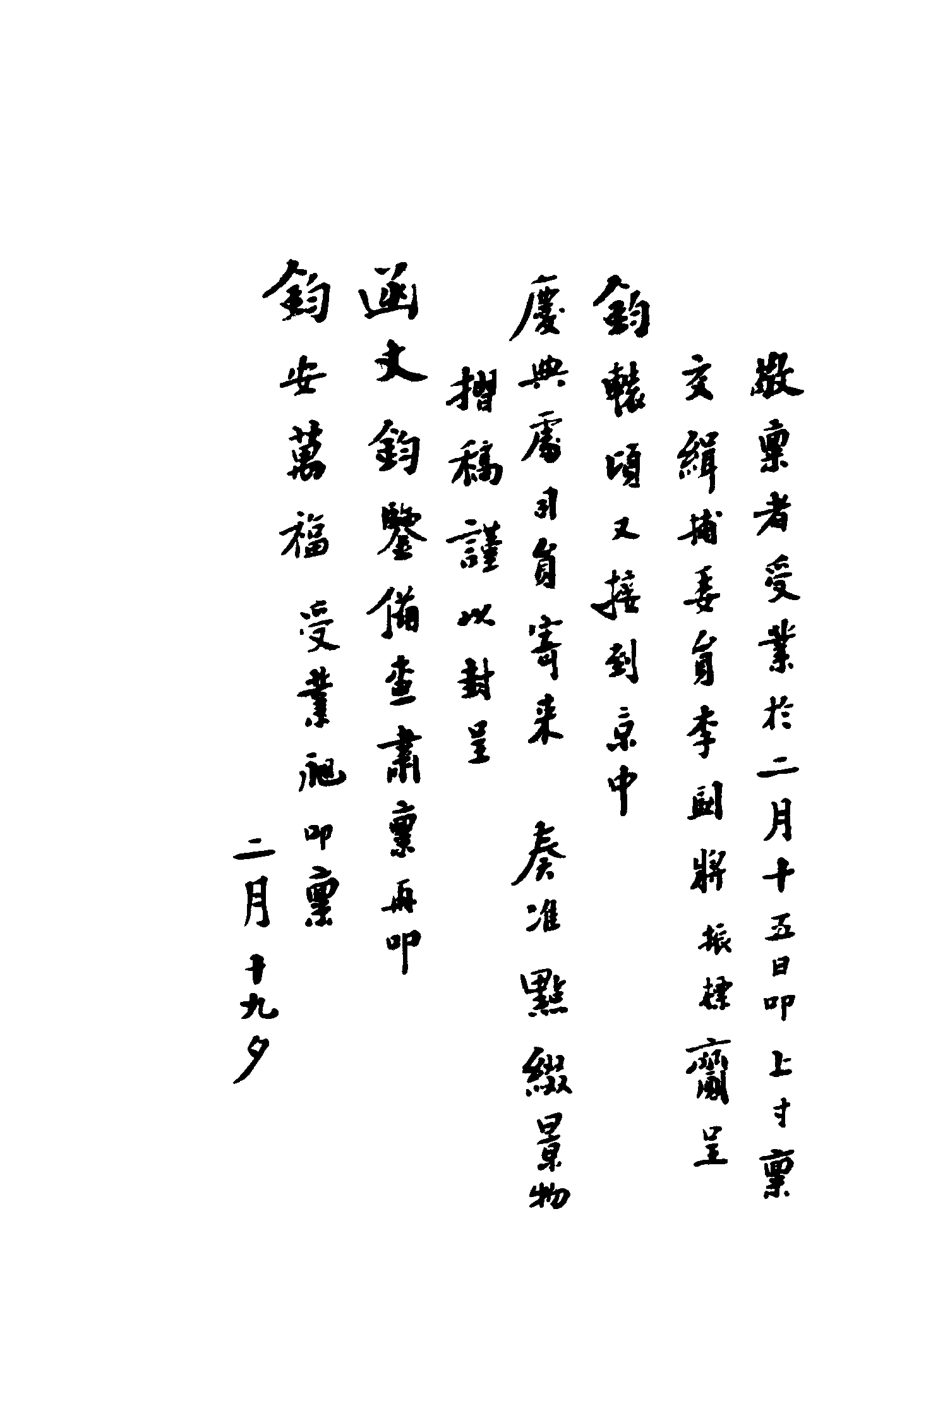 敬稟者受業於二月十五日叩上寸稟
交緝捕委員李國將振標齎呈
鈞轅頃又接到京中
慶典處司員寄来 奏准點綴景物
摺稿謹以封呈
函丈鈞鑒備查肅稟再叩
鈞安萬福 受業昶叩稟
二月十九夕